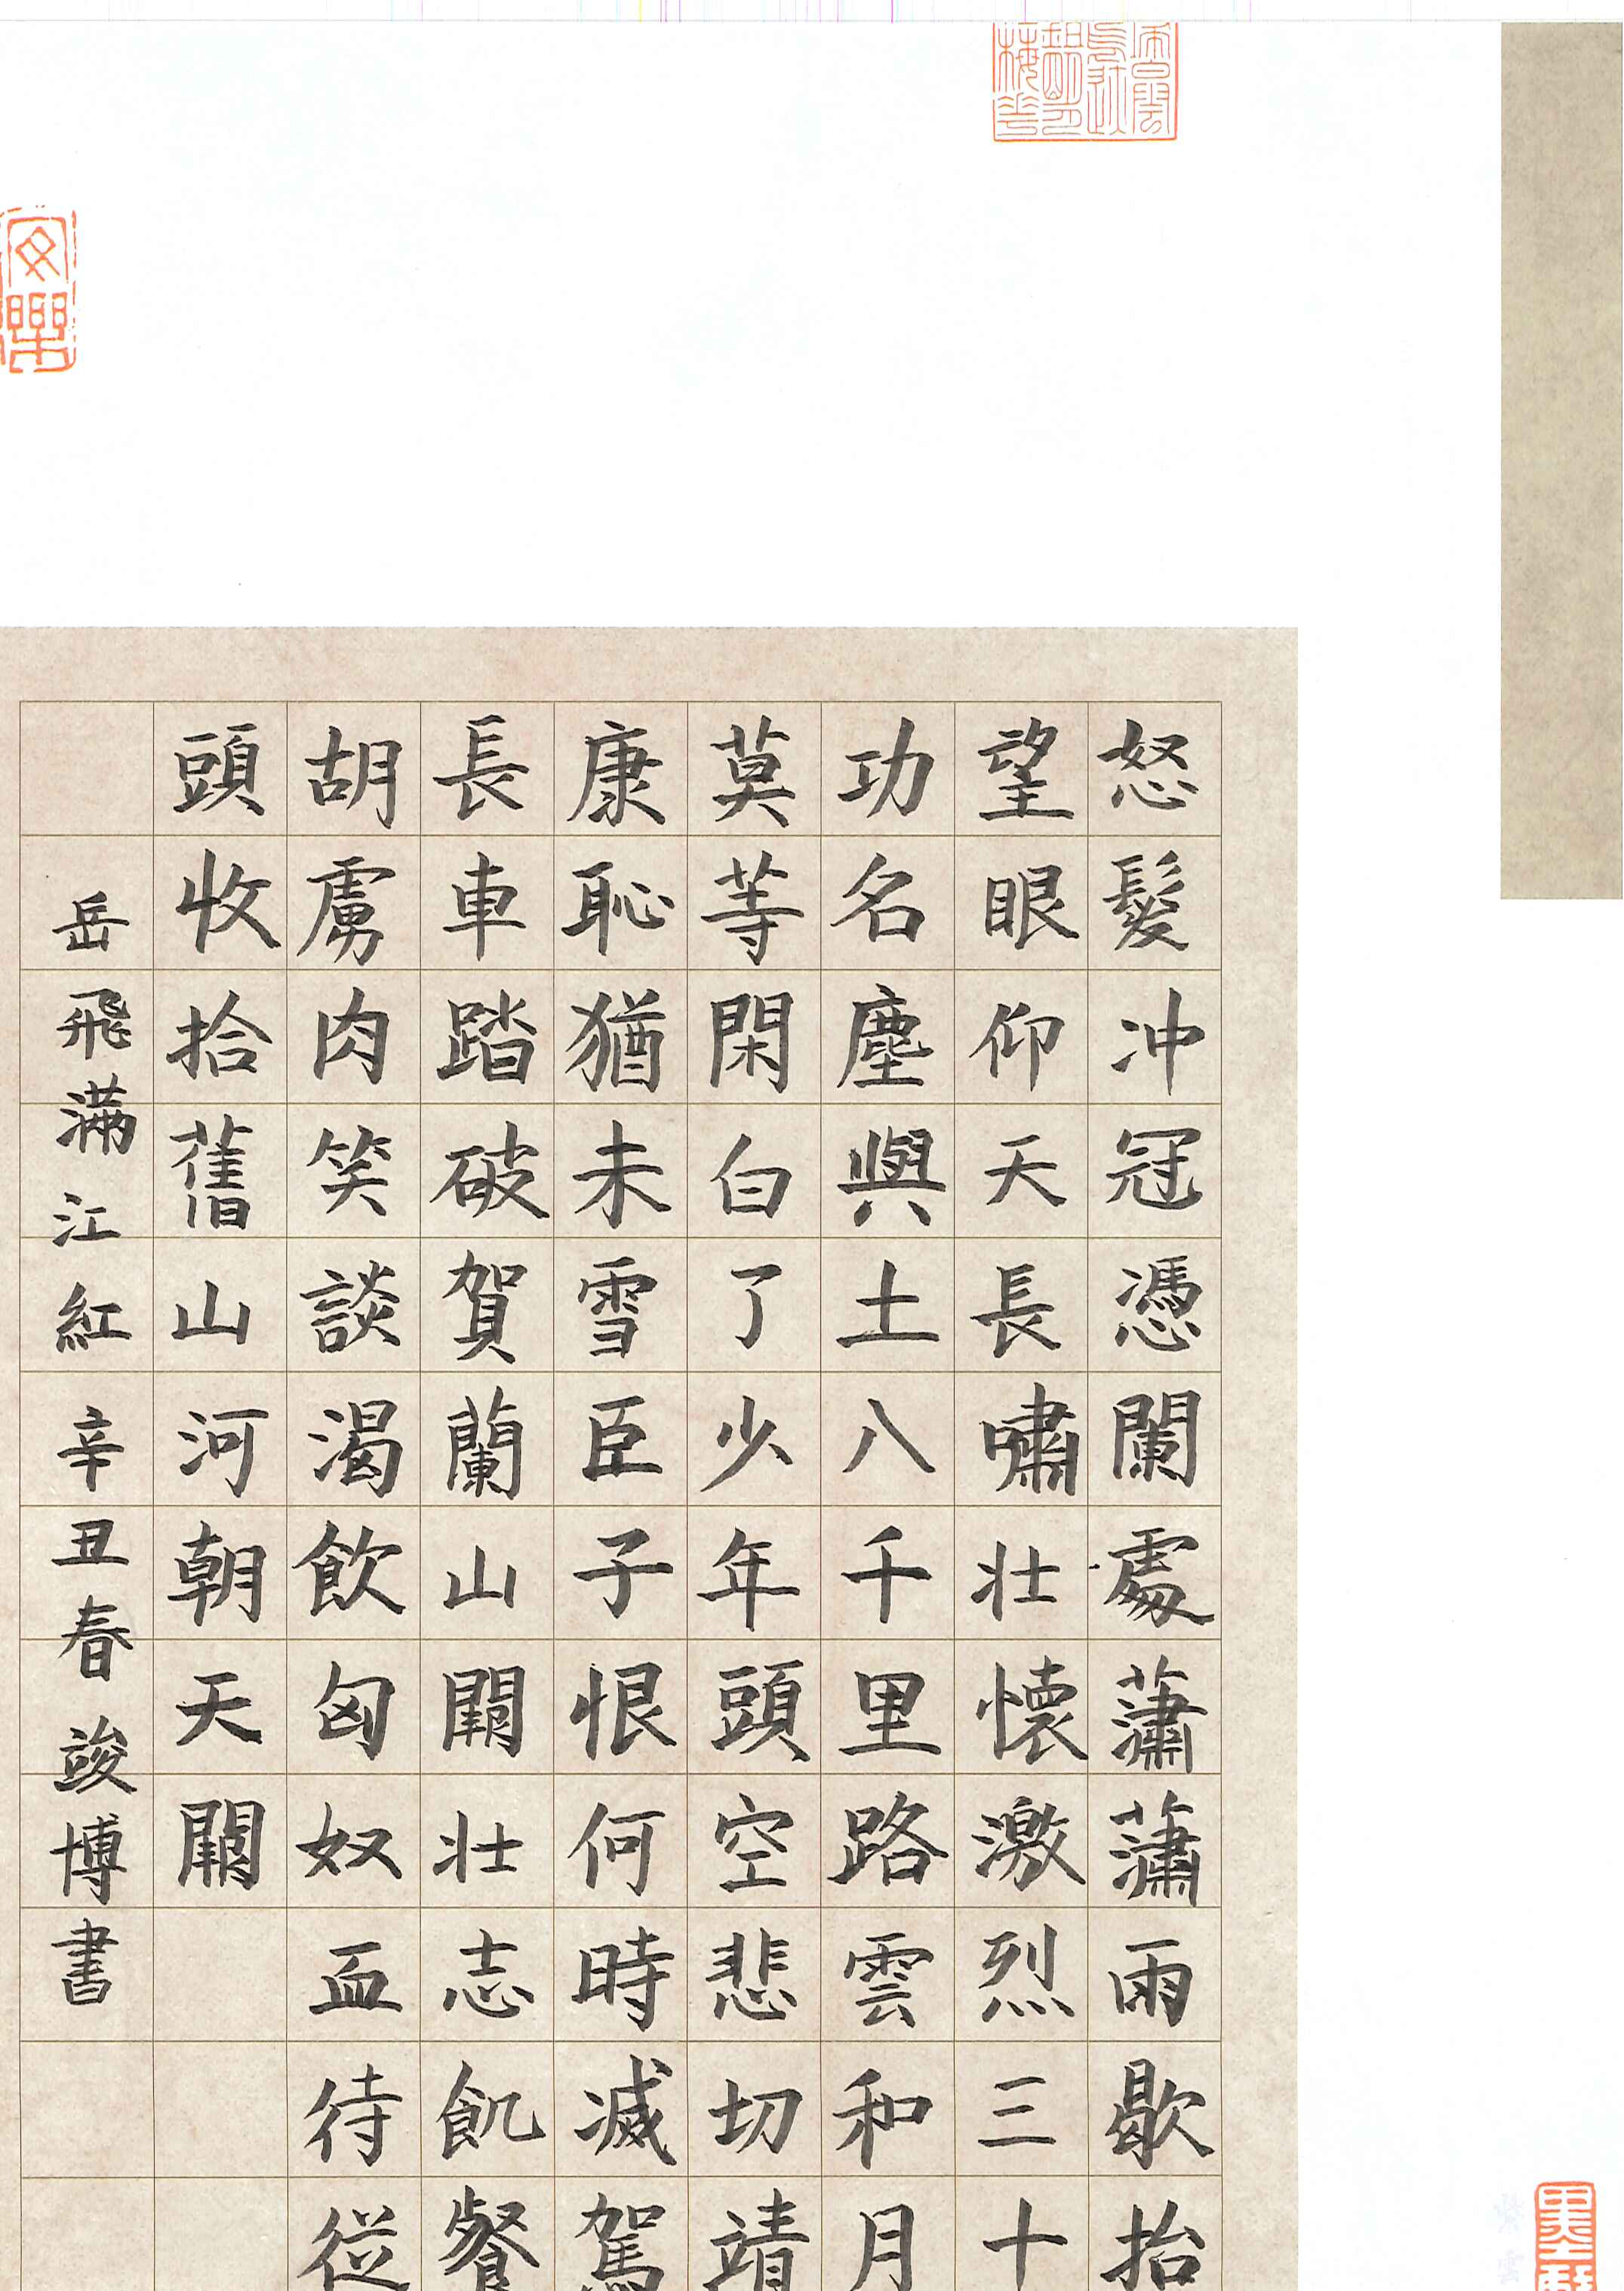 怒髮冲冠憑闌處蕭蕭雨歇抬
望眼仰天長嘯壯懷激烈三十
功名塵與土八千里路雲和月
莫等閑白了少年頭空悲切靖
康恥猶未雪臣子恨何時滅駕
長車踏破賀蘭山闕壯志飢餐
胡虜肉笑談渴飲匈奴血待從
頭收拾舊山河朝天闕
岳飛滿江紅辛丑春竣博書